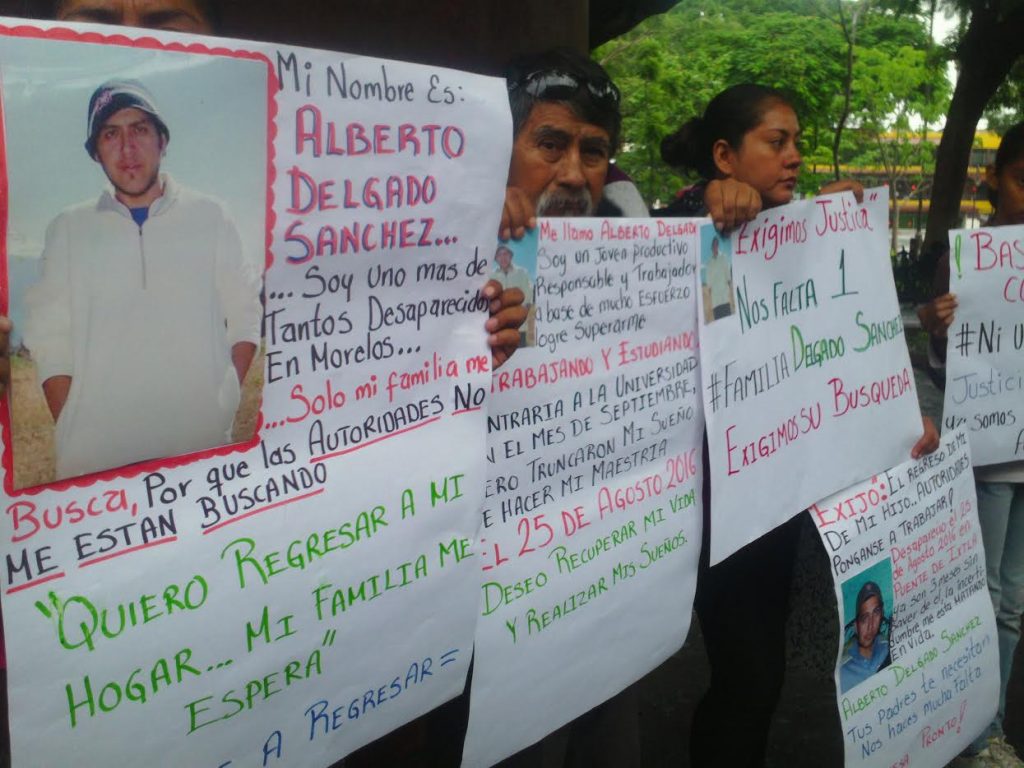 Mi Nombre Es:
ALBERTO
DELGADO
SANCHEZ...
... Soy Uno mas de
Tantos Desaparecidos
En Morelos...
...Solo mi familia me
Busca, Por que las AUTORIDADES NO
ME ESTAN BUSCANDO
"QUIERO REGRESAR A MI
HOGAR... MI FAMILIA ME
ESPERA"
A REGRESAR=
Me llamo ALBERTO DELGAD
Soy un Joven productivo
Responsable y Trabajador
a base de mucho ESFUERZO
logre Superarme
TRABAJANDO Y ESTUDIANDO
NTRARIA A LA UNIVERSIDAD
N EL MES DE SEPTIEMBRE,
ERO TRUNCARON MI SUEÑO
E HACER MI MAESTRIA
EL 25 DE AGOSTO 2016
DESEO RECUPERAR MI VIDA
Y REALIZAR MIS SUEÑOS.
Exigimos Justicia"
NOS FALTA 1
#FAMILIA DELGADO SANCHEZ
EXIGIMOS SU BUSQUEDA
EXIJO": EL REGRESO DE MI
DE MI HIJO.. AUTORIDADES
PONGANSE A TRABAJAR!
Desaparecio el 25
de Agosto 2016 en
PUENTE DE IXTLA
ya son 3 meses sin
saver de el, la incerti
dumbre me esta MATANDO
EN Vida.
ALBERTO DELGADO SANCHEZ
Tus Padres te necesitan
Nos haces mucha Falta
ESA PRONTO!
! BAS
CO
#Ni U
Justici
Ya somos
A